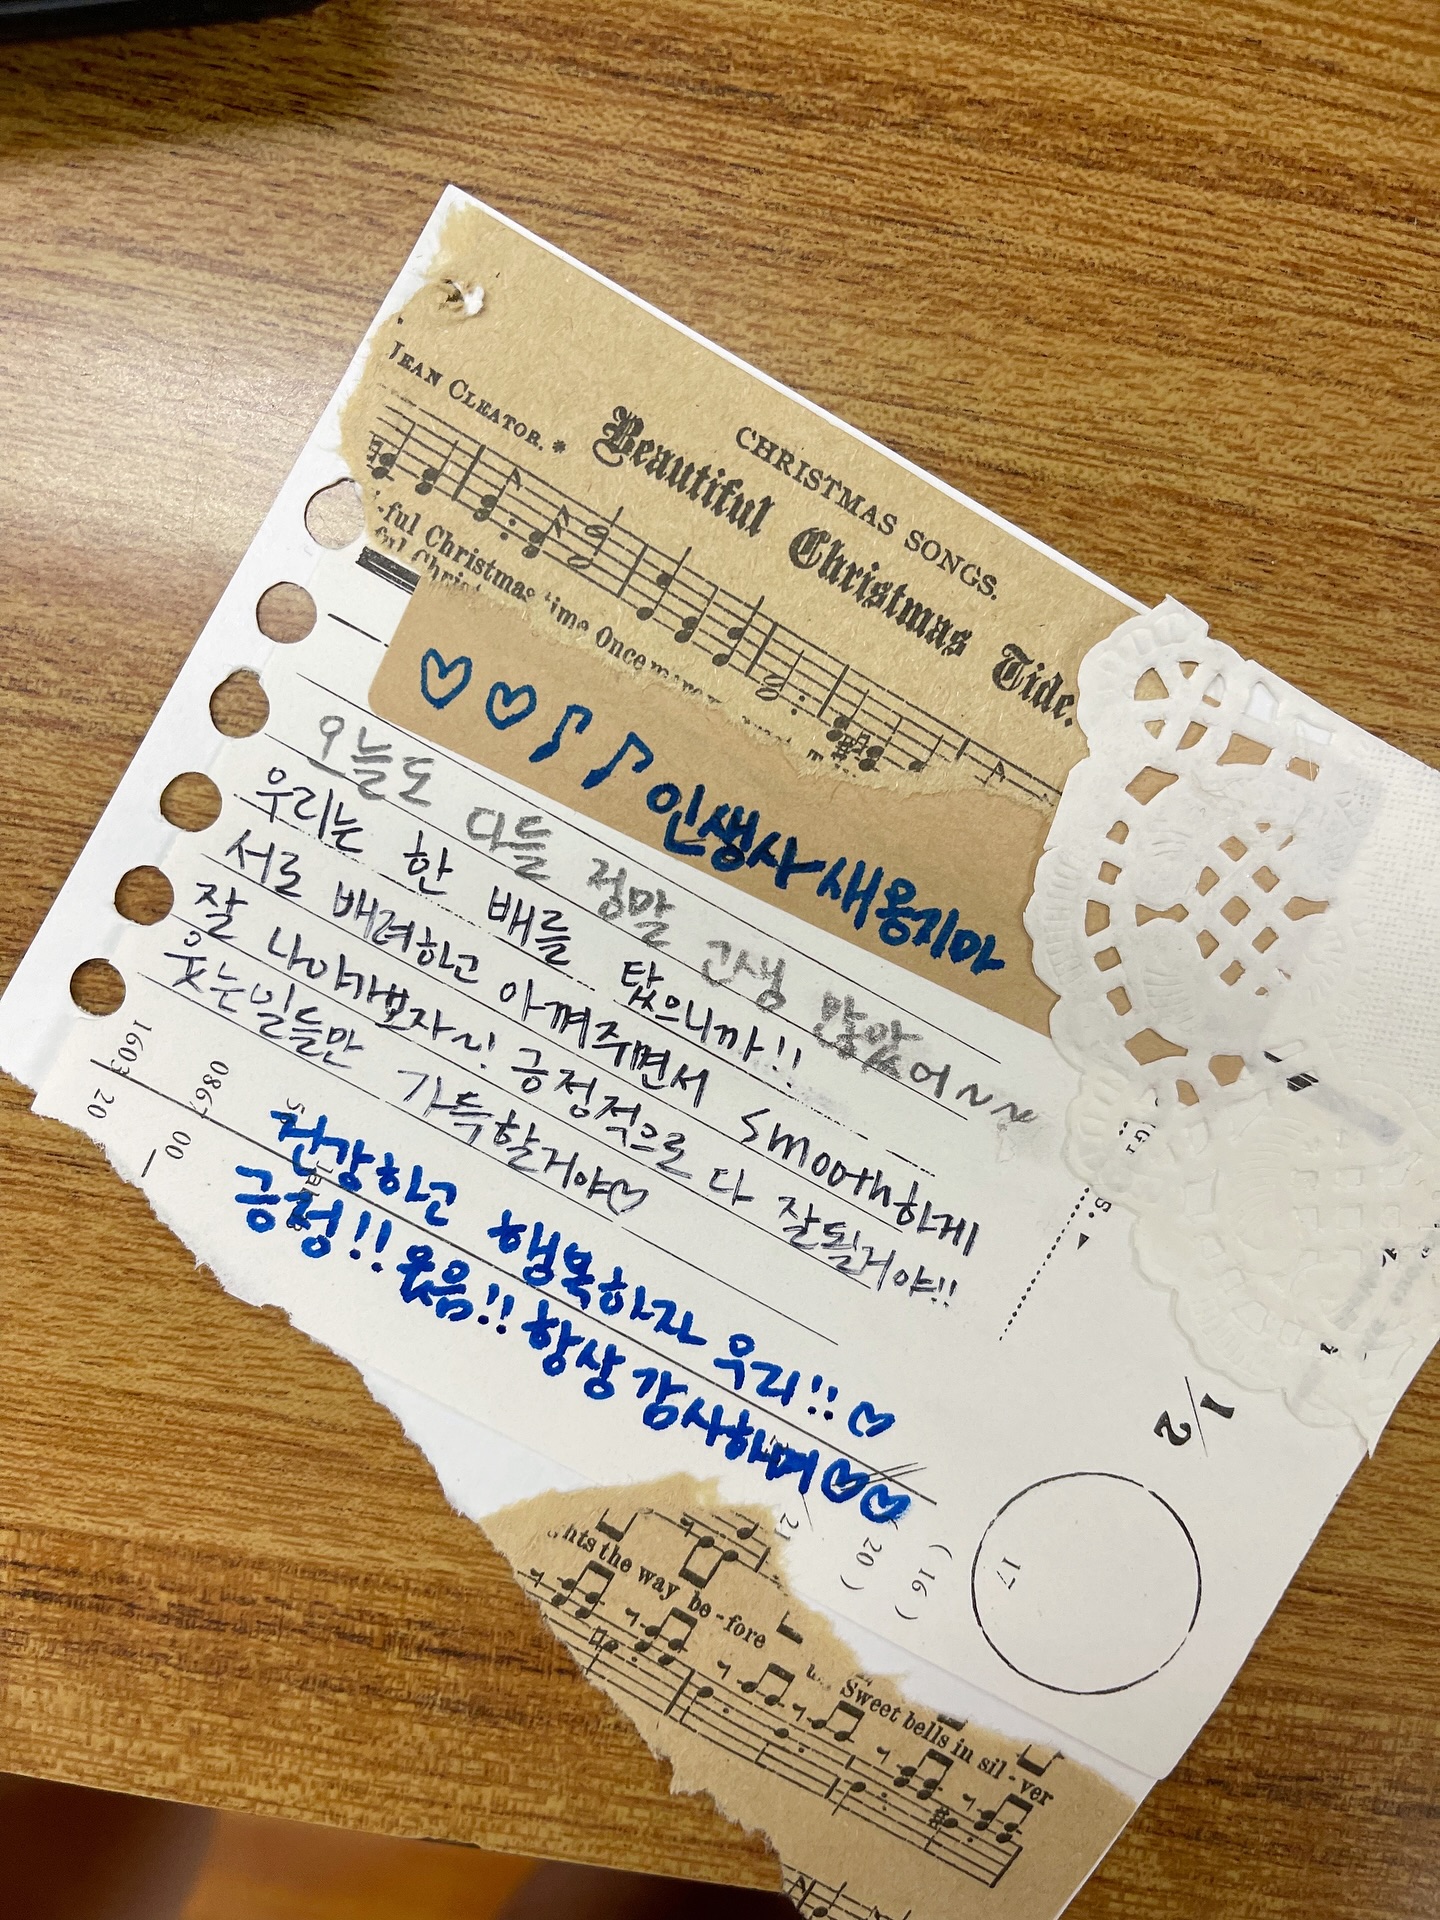 CHRISTMAS SONGS.
Beautiful Christmas Tide.
JEAN CLEATOR. *
-ful Christmas time Once more
ful Christ
♡♡♪♪인생사새옹지마
오늘도 다들 정말 고생 많았어~~
우리는 한 배를 탔으니까!!
서로 배려하고 아껴주면서 smooth하게
잘 나아가보자~! 긍정적으로 다 잘될거야!!
웃는일들만 가득할거야♡
건강하고 행복하자 우리!!♡
긍정!! 웃음!! 항상 감사하며♡♡
1603 20
086 00
1/2
17
(16)
(20)
21
hts the way be-fore
Sweet bells in sil-ver